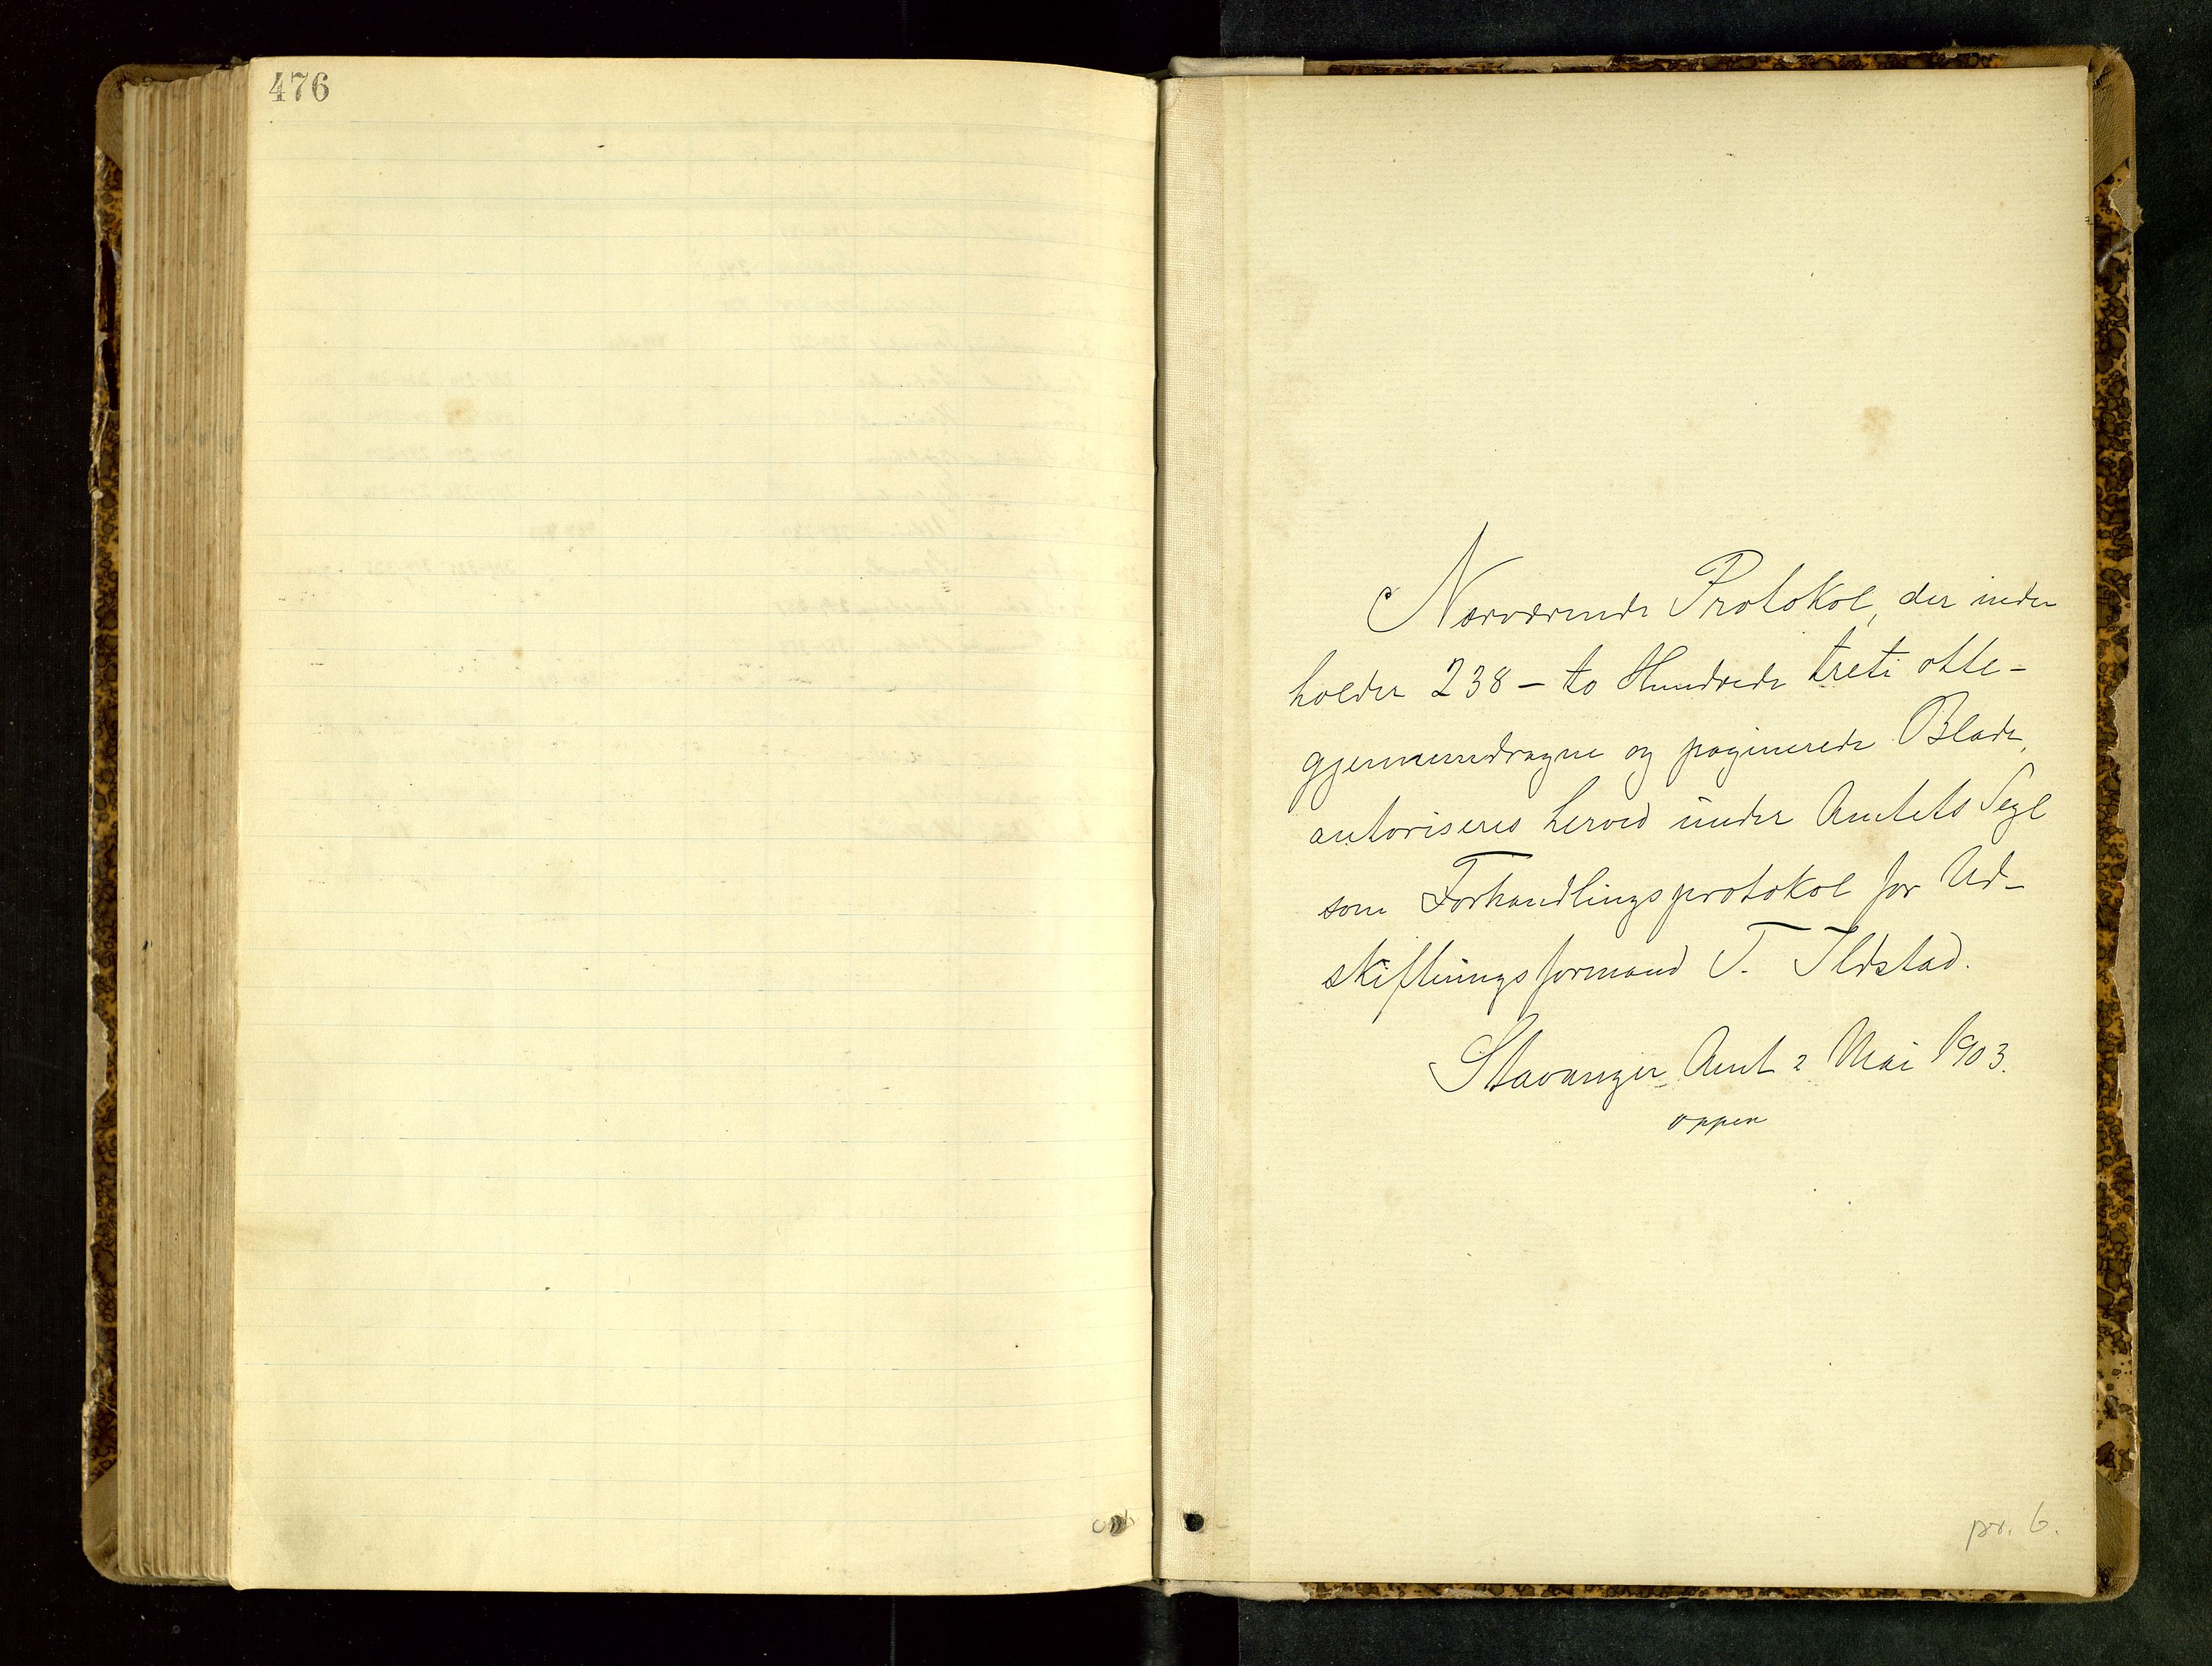 476
Nærværende Protokol, der inde-
holder 238 – to Hundrede treti otte –
gjennemdragne og paginerede Blade,
autoriseres herved under Amtets Segl
som Forhandlingsprotokol for Ud-
skiftningsformand T. Ildstad.
Stavanger Amt 2 Mai 1903.
oppen
pr. 6.